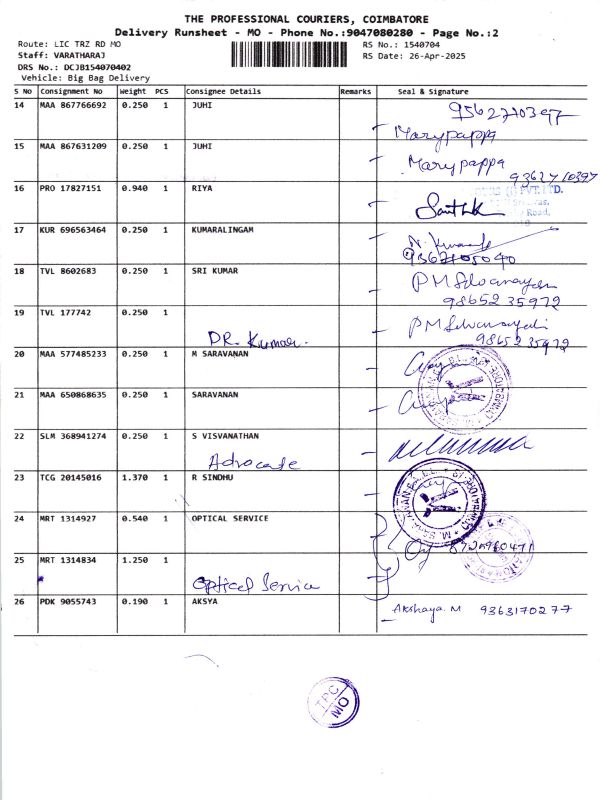 THE PROFESSIONAL COURIERS, COIMBATORE
Delivery Runsheet - MO - Phone No.:9047080280 - Page No.:2
Route: LIC TRZ RD MO
RS No.: 1540704
Staff: VARATHARAJ
RS Date: 26-Apr-2025
DRS No.: DCJB154070402
Vehicle: Big Bag Delivery
S NO Consignment No Weight PCS Consignee Details Remarks Seal & Signature
14 MAA 867766692 0.250 1 JUHI
9562710397
Marypappa
15 MAA 867631209 0.250 1 JUHI
Marypappa
9362710397
16 PRO 17827151 0.940 1 RIYA
PVT. LTD.
Road,
17 KUR 696563464 0.250 1 KUMARALINGAM
9362105040
18 TVL 8602683 0.250 1 SRI KUMAR
98652 35972
19 TVL 177742 0.250 1
DR. Kumar.
98652 35972
20 MAA 577485233 0.250 1 M SARAVANAN
21 MAA 650868635 0.250 1 SARAVANAN
22 SLM 368941274 0.250 1 S VISVANATHAN
Advocate
23 TCG 20145016 1.370 1 R SINDHU
24 MRT 1314927 0.540 1 OPTICAL SERVICE
25 MRT 1314834 1.250 1
Optical Service
26 PDK 9055743 0.190 1 AKSYA
Akshaya. M 9363170277
TPC
MO